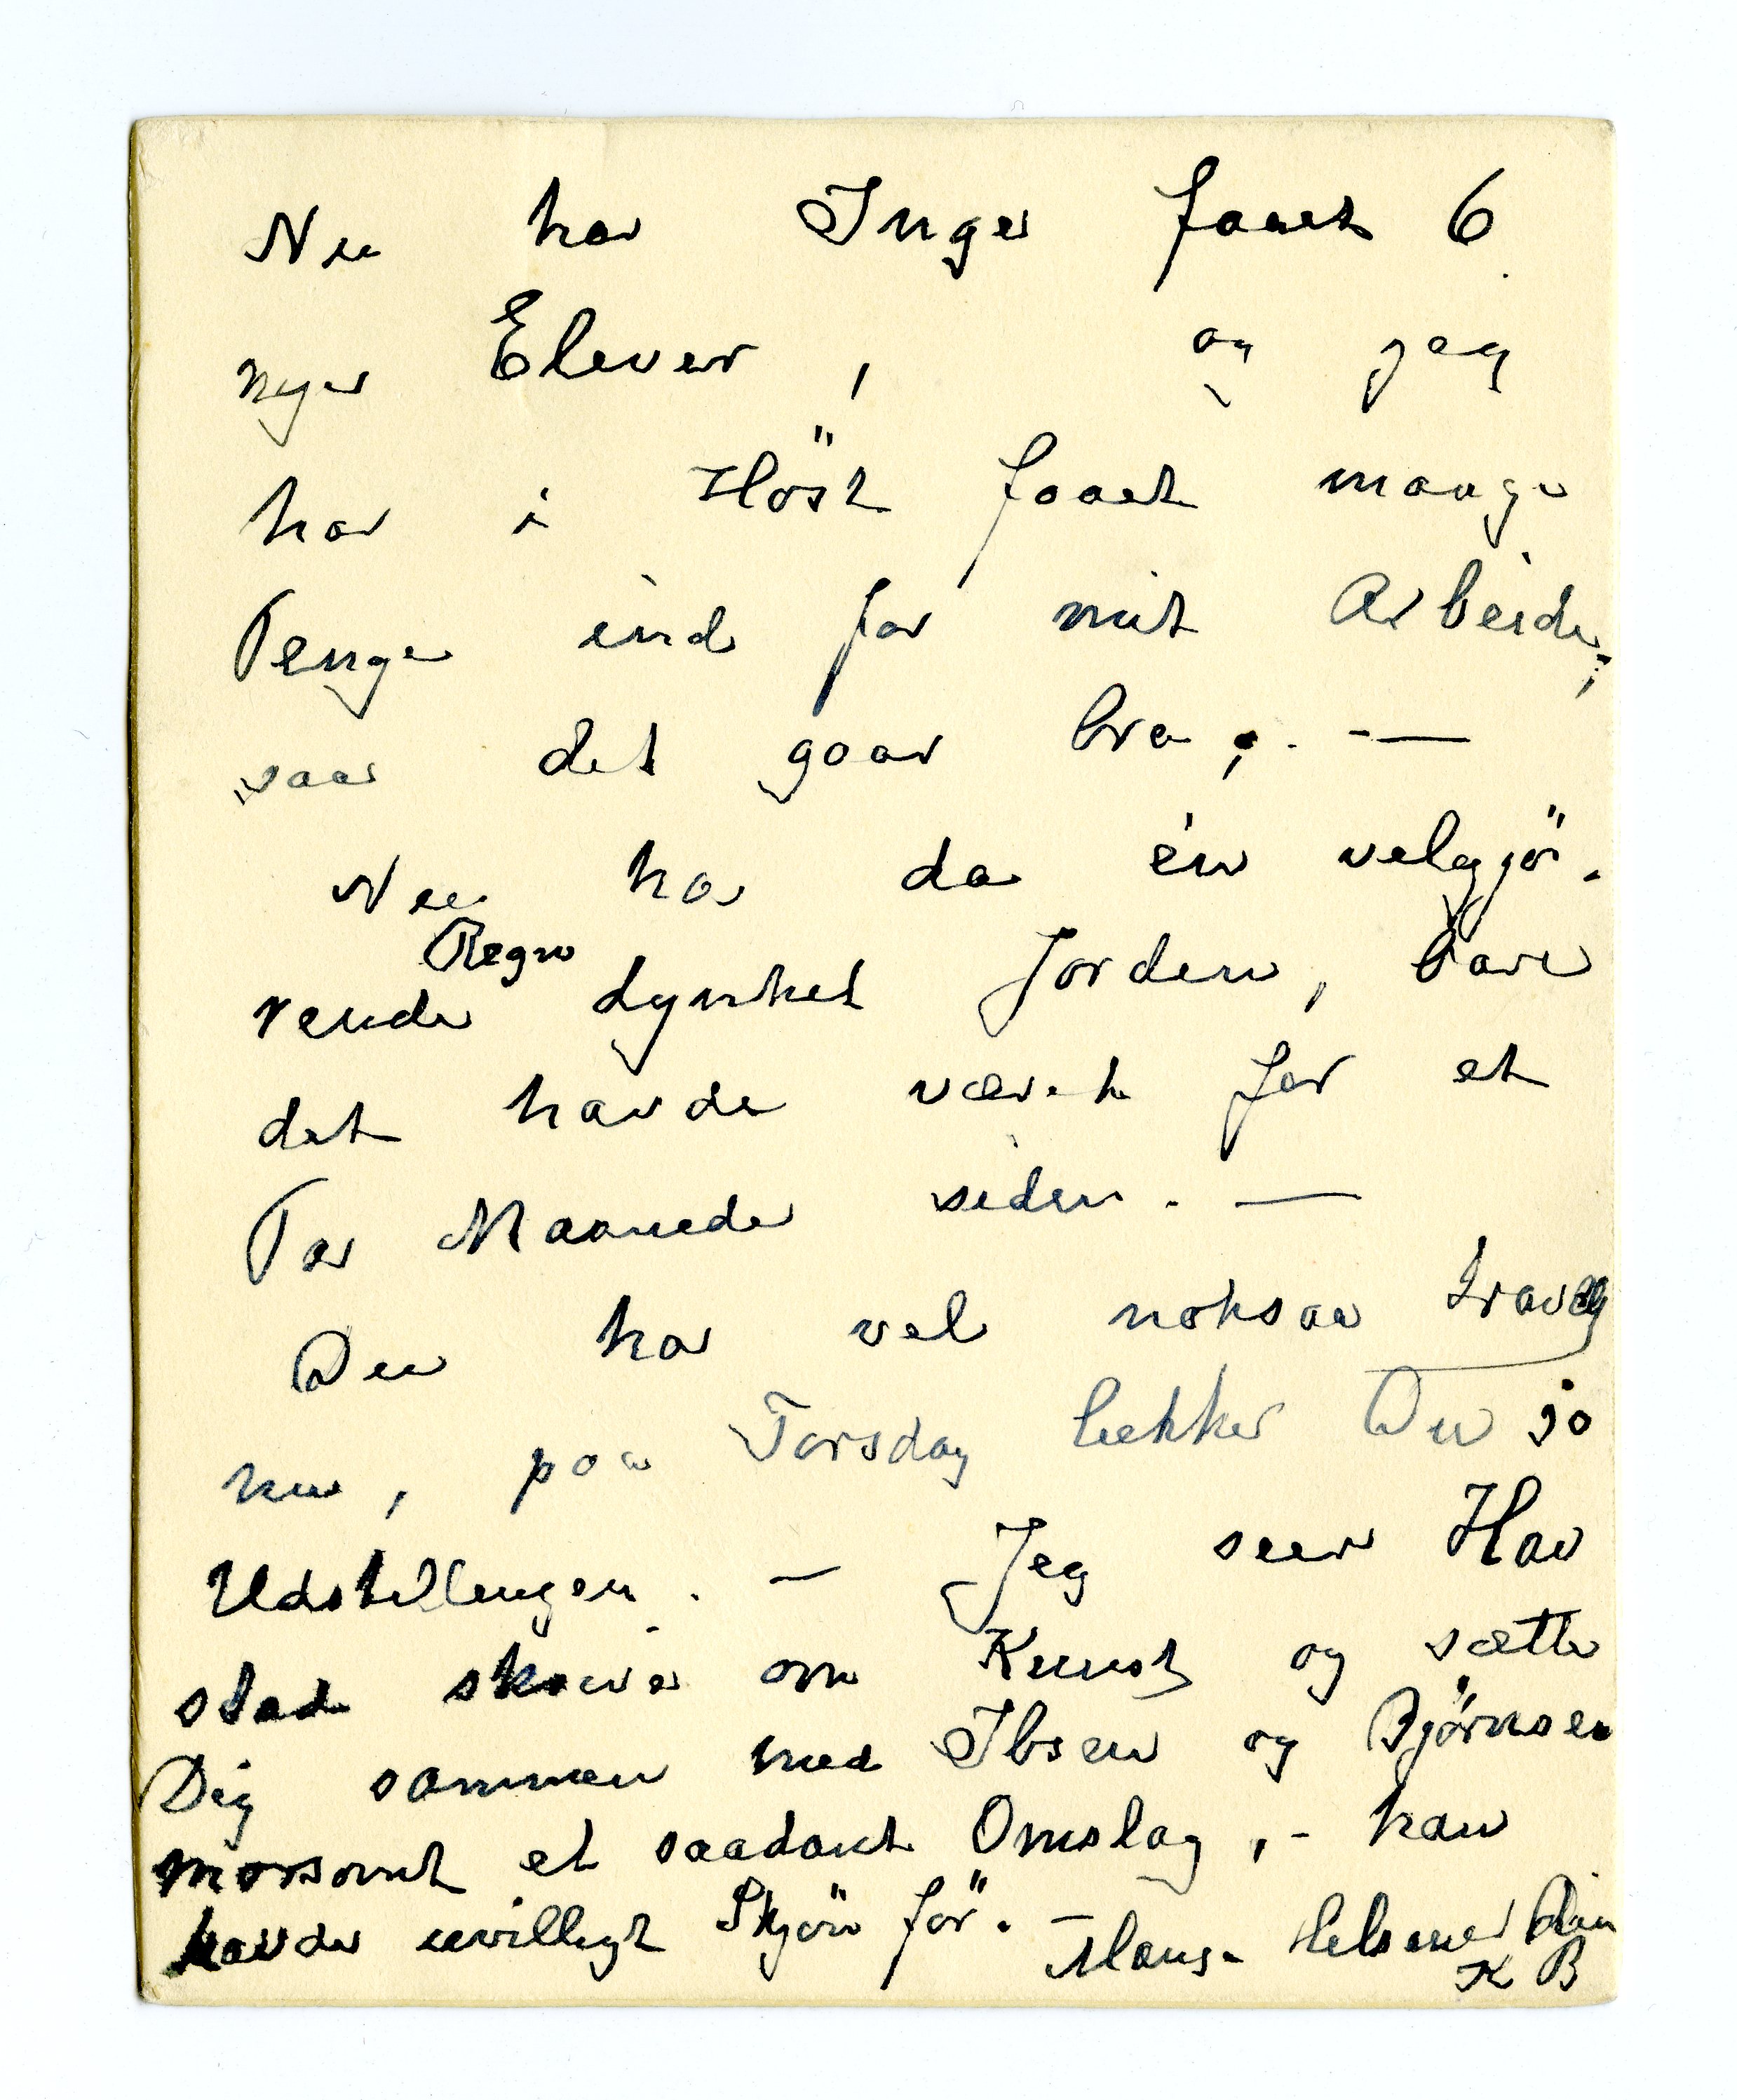 Nu har Inger faaet 6
nye Elever, og jeg
har i Höst faaet mange
Penge ind for mit Arbeide,
saa det gaar bra,. —
Nu har da en velgjö-
Regn
rende dynket Jorden, bare
det havde været for et
Par Maaneder siden. —
Du har vel noksaa travelt
nu, paa Torsdag lukker Du jo
Udstillingen. — Jeg seer Hav
stad skrive om Kunst og sætte
Dig sammen med Ibsen og Björnson
morsomt et saadant Omslag, - han
havde uvilligt Skjön för. — Mange hilsener Din
K B